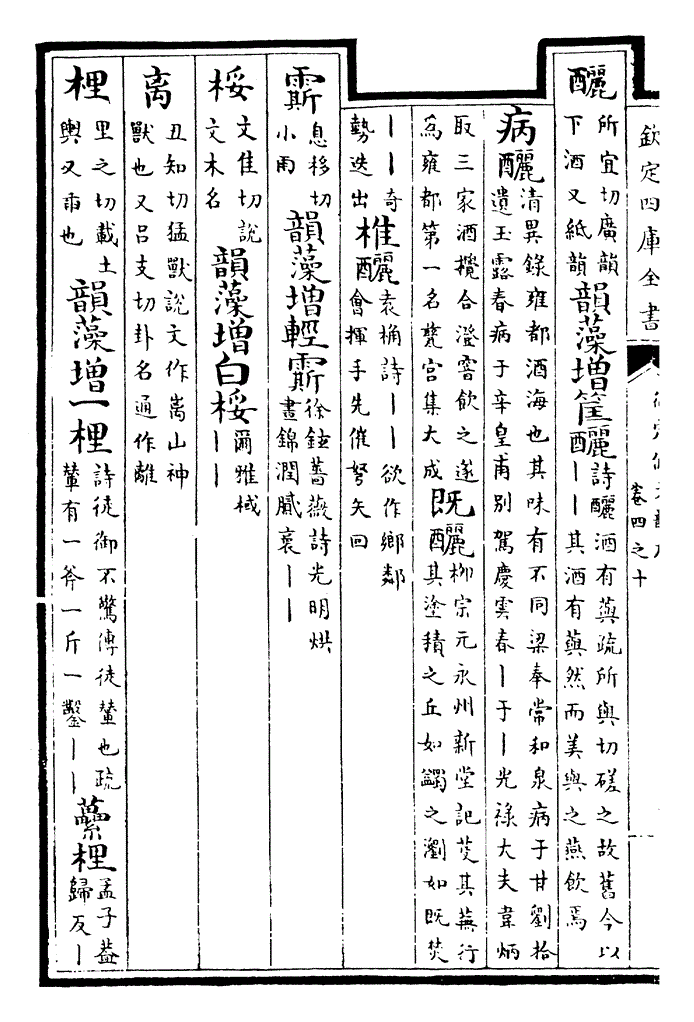 欽定四庫全書
卷四之十
釃
所宜切廣韻
下酒又紙韻
韻藻增筐釃
詩釃酒有藇疏所與切磋之故舊今以
丨丨其酒有藇然而美與之燕飲焉
病釃
清異錄雍都酒海也其味有不同梁奉常和泉病于甘劉拾
遺玉露春病于辛皇甫別駕慶雲春丨于丨光祿大夫韋炳
取三家酒攪合澄窨飲之遂
為雍都第一名甆宮集大成
既釃
柳宗元永州新堂記芟其蕪行
其塗積之丘如蠲之瀏如既焚
丨丨奇
勢迭出
椎釃
袁桷詩丨丨欲作鄉鄰
會揮手先催弩矢回
息移切
小雨
韻藻增輕
徐鉉薔薇詩光明烘
晝錦潤膩裛丨丨
桵
文隹切說
文木名
韻藻增白桵
爾雅棫
丨丨
离
丑知切猛獸說文作嵩山神
獸也又呂支切卦名通作離
梩
里之切載土
轝又臿也
韻藻增一梩
詩徒御不驚傳徒輦也疏
輦有一斧一斤一鑿丨丨
虆梩
孟子蓋
歸反丨